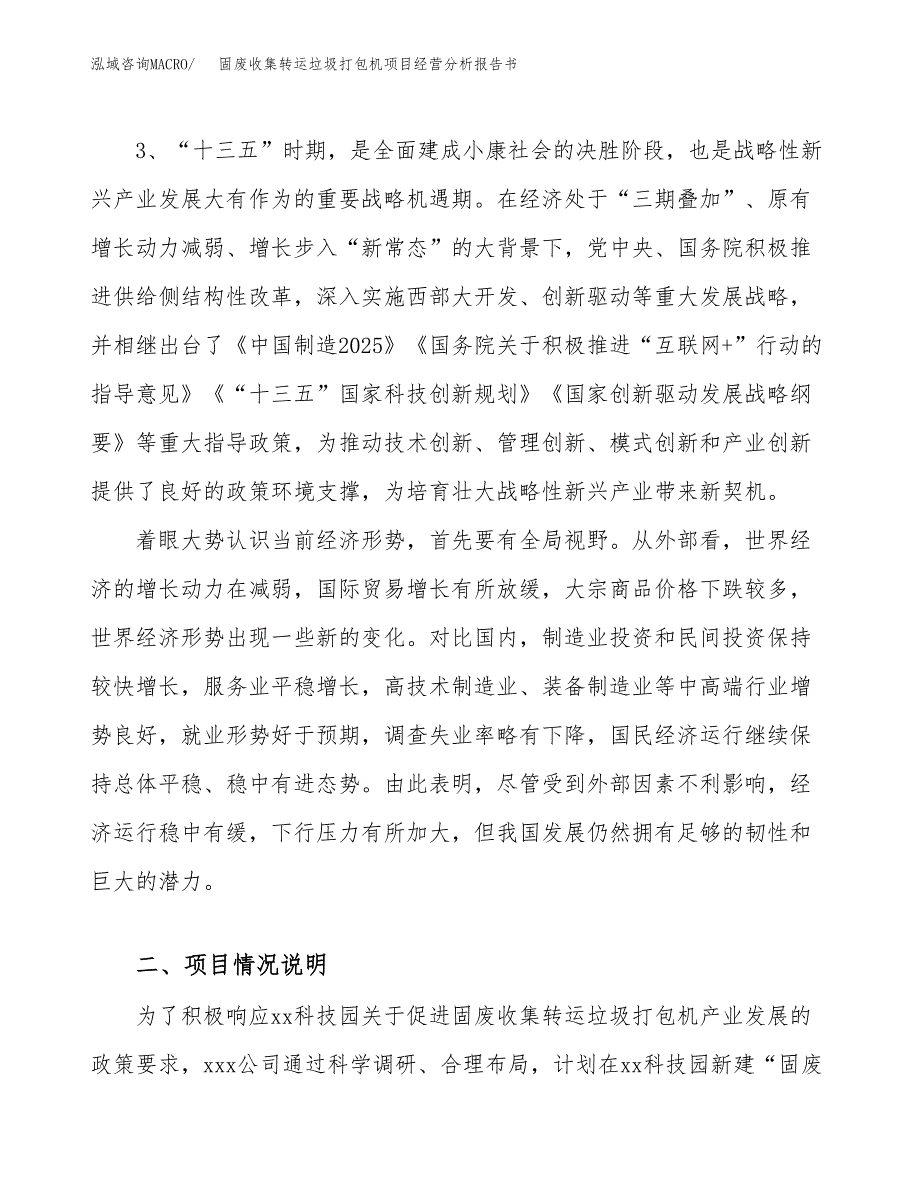 泓域咨询MACRO/ 固废收集转运垃圾打包机项目经营分析报告书
3、“十三五”时期，是全面建成小康社会的决胜阶段，也是战略性新
兴产业发展大有作为的重要战略机遇期。在经济处于“三期叠加”、原有
增长动力减弱、增长步入“新常态”的大背景下，党中央、国务院积极推
进供给侧结构性改革，深入实施西部大开发、创新驱动等重大发展战略，
并相继出台了《中国制造2025》《国务院关于积极推进“互联网+”行动的
指导意见》《“十三五”国家科技创新规划》《国家创新驱动发展战略纲
要》等重大指导政策，为推动技术创新、管理创新、模式创新和产业创新
提供了良好的政策环境支撑，为培育壮大战略性新兴产业带来新契机。
着眼大势认识当前经济形势，首先要有全局视野。从外部看，世界经
济的增长动力在减弱，国际贸易增长有所放缓，大宗商品价格下跌较多，
世界经济形势出现一些新的变化。对比国内，制造业投资和民间投资保持
较快增长，服务业平稳增长，高技术制造业、装备制造业等中高端行业增
势良好，就业形势好于预期，调查失业率略有下降，国民经济运行继续保
持总体平稳、稳中有进态势。由此表明，尽管受到外部因素不利影响，经
济运行稳中有缓，下行压力有所加大，但我国发展仍然拥有足够的韧性和
巨大的潜力。
二、项目情况说明
为了积极响应xx科技园关于促进固废收集转运垃圾打包机产业发展的
政策要求，xxx公司通过科学调研、合理布局，计划在xx科技园新建“固废